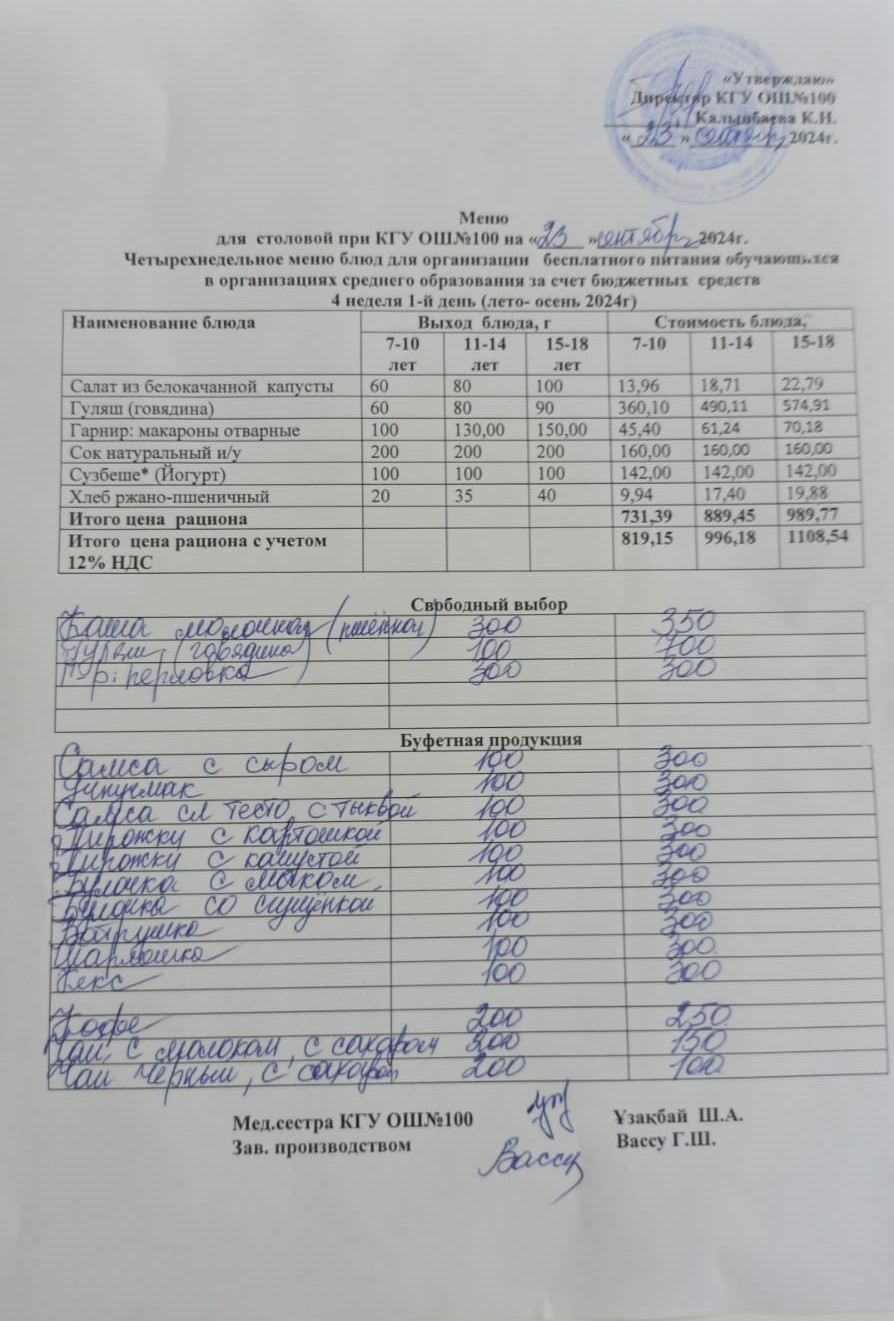 «Утверждаю»
Директор КГУ ОШ№100
Калыпбаева К.И.
« 23 » сентябрь 2024г.
Меню
для столовой при КГУ ОШ№100 на « 23 » сентябрь 2024г.
Четырехнедельное меню блюд для организации бесплатного питания обучающихся
в организациях среднего образования за счет бюджетных средств
4 неделя 1-й день (лето- осень 2024г)
Наименование блюда Выход блюда, г Стоимость блюда,
7-10 лет 11-14 лет 15-18 лет 7-10 11-14 15-18
Салат из белокачанной капусты 60 80 100 13,96 18,71 22,79
Гуляш (говядина) 60 80 90 360,10 490,11 574,91
Гарнир: макароны отварные 100 130,00 150,00 45,40 61,24 70,18
Сок натуральный и/у 200 200 200 160,00 160,00 160,00
Сузбеше* (Йогурт) 100 100 100 142,00 142,00 142,00
Хлеб ржано-пшеничный 20 35 40 9,94 17,40 19,88
Итого цена рациона 731,39 889,45 989,77
Итого цена рациона с учетом 819,15 996,18 1108,54
12% НДС
Свободный выбор
Каша молочная (пшённая) 300 350
Гуляш (говядина) 100 700
Гр: перловка 300 300
Буфетная продукция
Самса с сыром 100 300
Учпучмак 100 300
Самса сл тесто с тыквой 100 300
Пирожки с картошкой 100 300
Пирожки с капустой 100 300
Булочка с маком 100 300
Булочка со сгущёнкой 100 300
Ватрушка 100 300
100 300
Кекс 100 300
Кофе 200 250
Чай с молоком, с сахаром 200 150
Чай черный, с сахаром 200 100
Мед.сестра КГУ ОШ№100 Ұзақбай Ш.А.
Зав. производством Вассу Вассу Г.Ш.